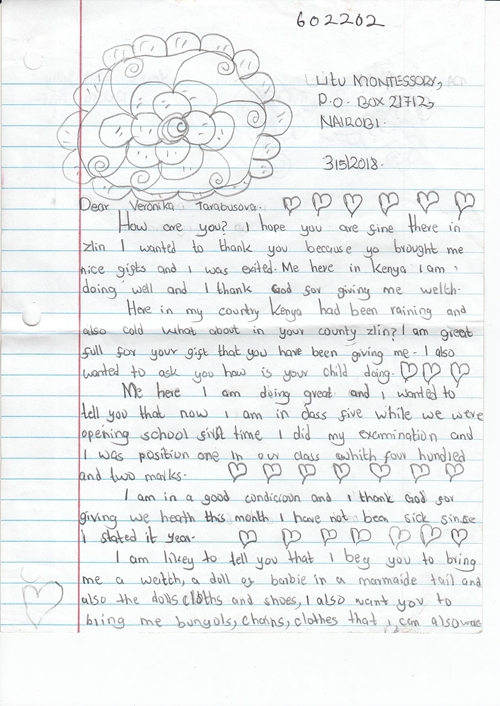 602202
Litu MONTESSORY,
P.O. BOX 21712,
NAIROBI.
3/5/2018.
Dear Veronika Tarabusova.
How are you? I hope you are fine there in
zlin I wanted to thank you because yo brought me
nice gifts and I was exited. Me here in Kenya I am
doing well and I thank God for giving me welth.
Here in my country Kenya had been raining and
also cold what about in your county zlin? I am great
full for your gift that you have been giving me. I also
wanted to ask you how is your child doing.
Me here I am doing great and I wanted to
tell you that now I am in class five while we were
opening school first time I did my examination and
I was position one in our class whith four hundred
and two marks.
I am in a good condiccion and I thank God for
giving we heath this month I have not been sick sinse
I stated it year.
I am likey to tell you that I beg you to bring
me a weitch, a doll of barbie in a marmaide tail and
also the dolls cloths and shoes, I also want you to
bring me bungols, chains, clothes that I can also